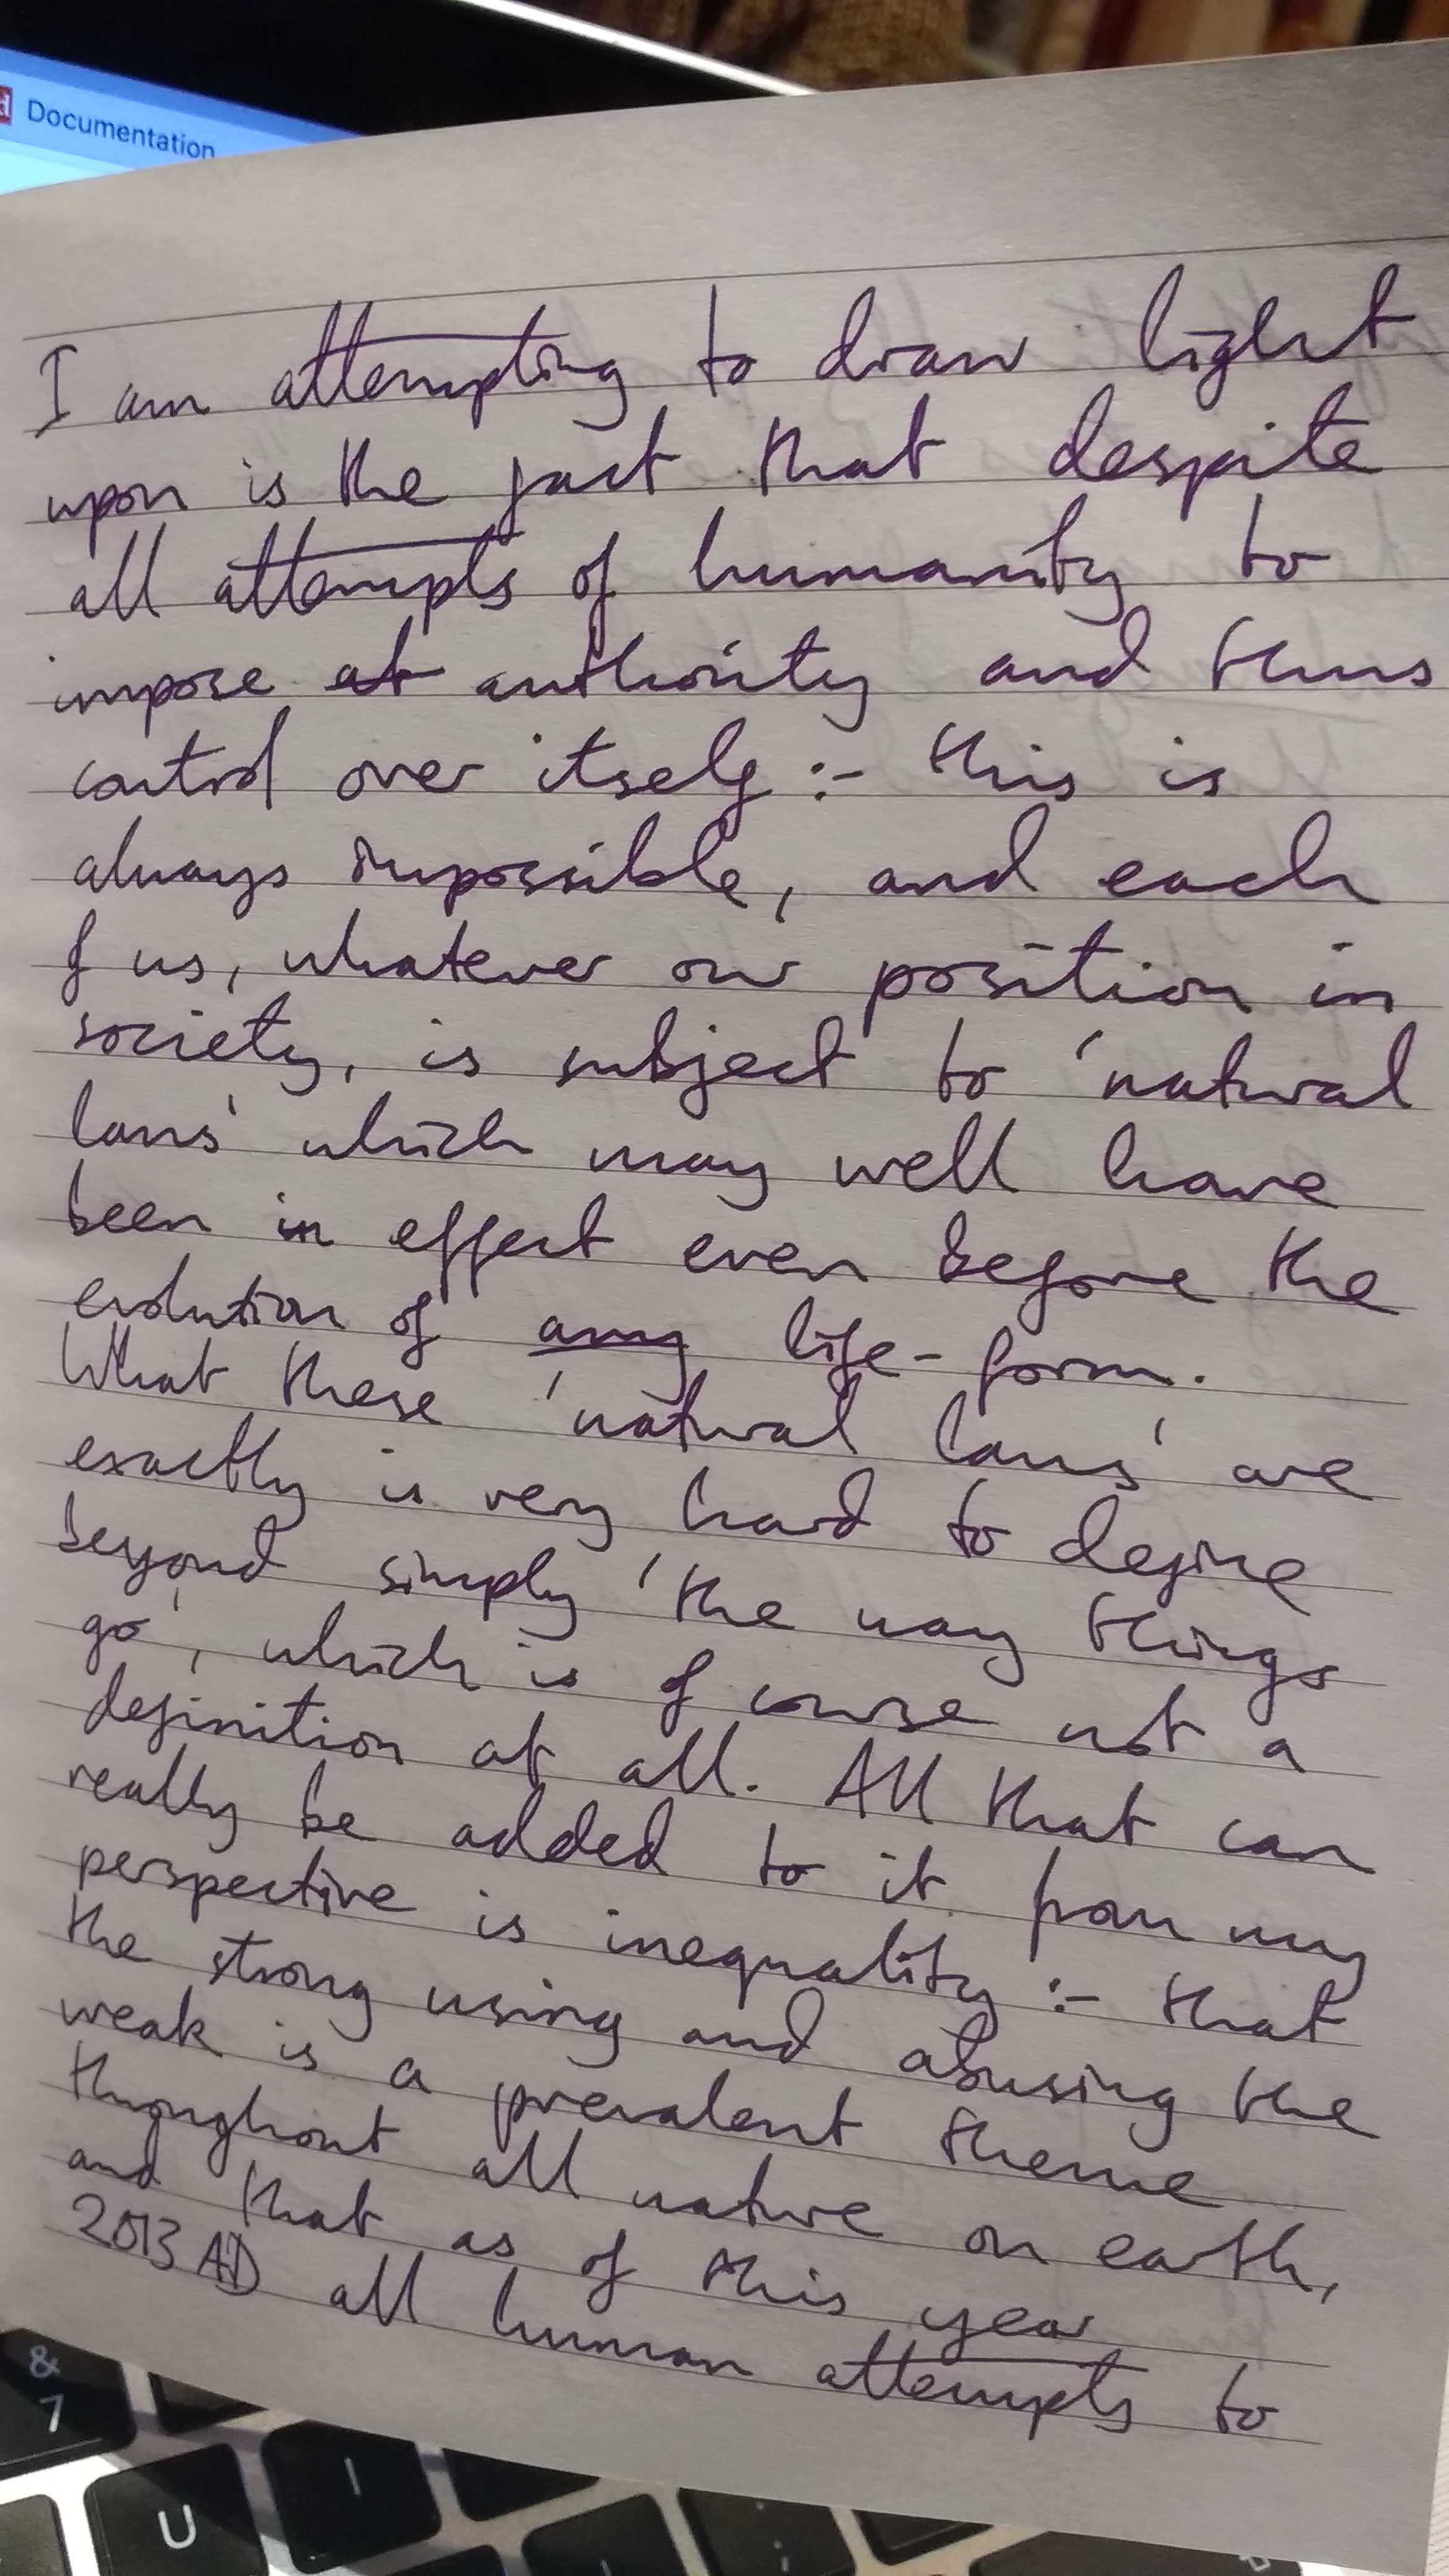 Documentation
I am attempting to draw light
upon is the fact that despite
all attempts of humanity to
impose at authority and thus
control over itself :- this is
always impossible, and each
of us, whatever our position in
society, is subject to 'natural
laws' which may well have
been in effect even before the
evolution of any life-form.
What these 'natural laws' are
exactly is very hard to define
beyond simply 'the way things
go', which is of course not a
definition at all. All that can
really be added to it from my
perspective is inequality :- that
the strong using and abusing the
weak is a prevalent theme
throughout all nature on earth,
and that as of this year
2013 AD all human attempts to
&
7
U
I